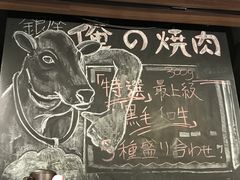 銀座
俺の焼肉
300g
「特選 最上級
黒毛和牛
5種盛り合わせ」